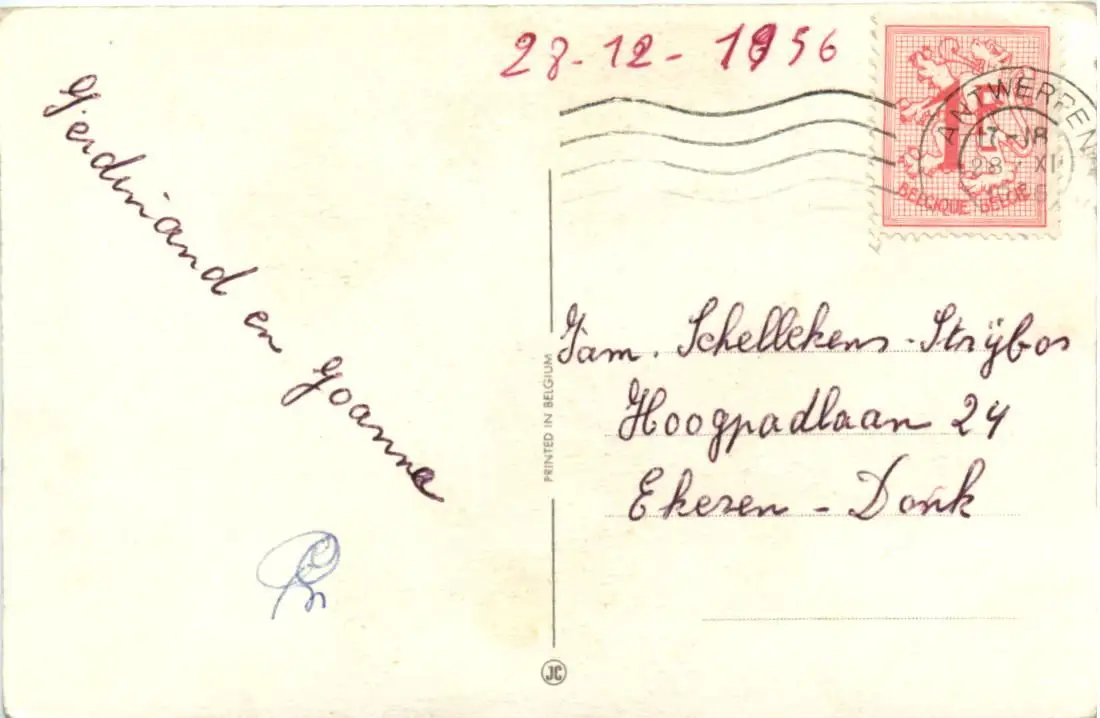 28-12-1956
ANTWERPEN
17-18
28 XII
1F
BELGIQUE BELGIË
Ferdinand en Joanna
Fam. Schellekens-Strijbos
Hoogpadlaan 24
Ekeren - Donk
PRINTED IN BELGIUM
JC